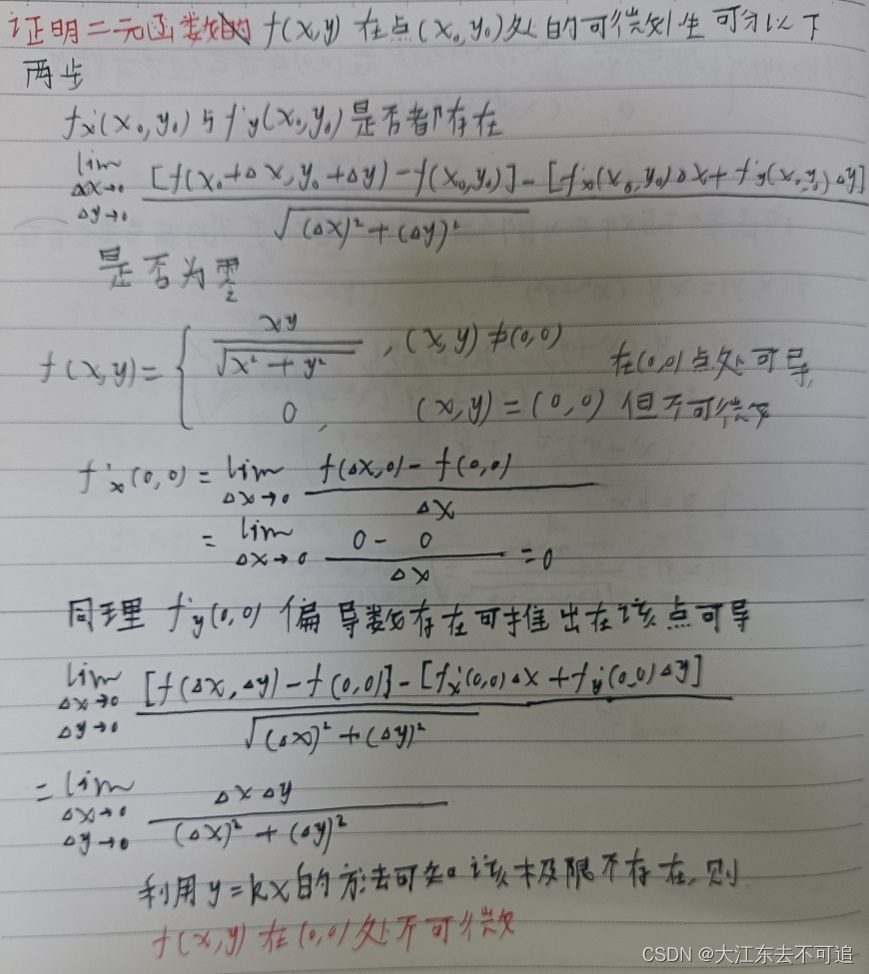 证明二元函数的 f(x,y) 在点(x₀,y₀)处的可微性可分以下
两步
f'x(x₀,y₀)与f'y(x₀,y₀)是否都存在
lim Δx→0 Δy→0 [f(x₀+Δx,y₀+Δy)-f(x₀,y₀)]-[f'x(x₀,y₀)Δx+f'y(x₀,y₀)Δy] / √((Δx)²+(Δy)²)
是否为零
f(x,y)= { xy / √(x²+y²) , (x,y)≠(0,0) 在(0,0)点处可导,
0, (x,y)=(0,0) 但不可微
f'x(0,0)= lim Δx→0 f(Δx,0)-f(0,0) / Δx
= lim Δx→0 0-0 / Δx =0
同理 f'y(0,0) 偏导数存在可推出在该点可导
lim Δx→0 Δy→0 [f(Δx,Δy)-f(0,0)]-[f'x(0,0)Δx+f'y(0,0)Δy] / √((Δx)²+(Δy)²)
= lim Δx→0 Δy→0 ΔxΔy / (Δx)²+(Δy)²
利用y=kx的方法可知。该极限不存在,则
f(x,y)在(0,0)处不可微
CSDN @大江东去不可追